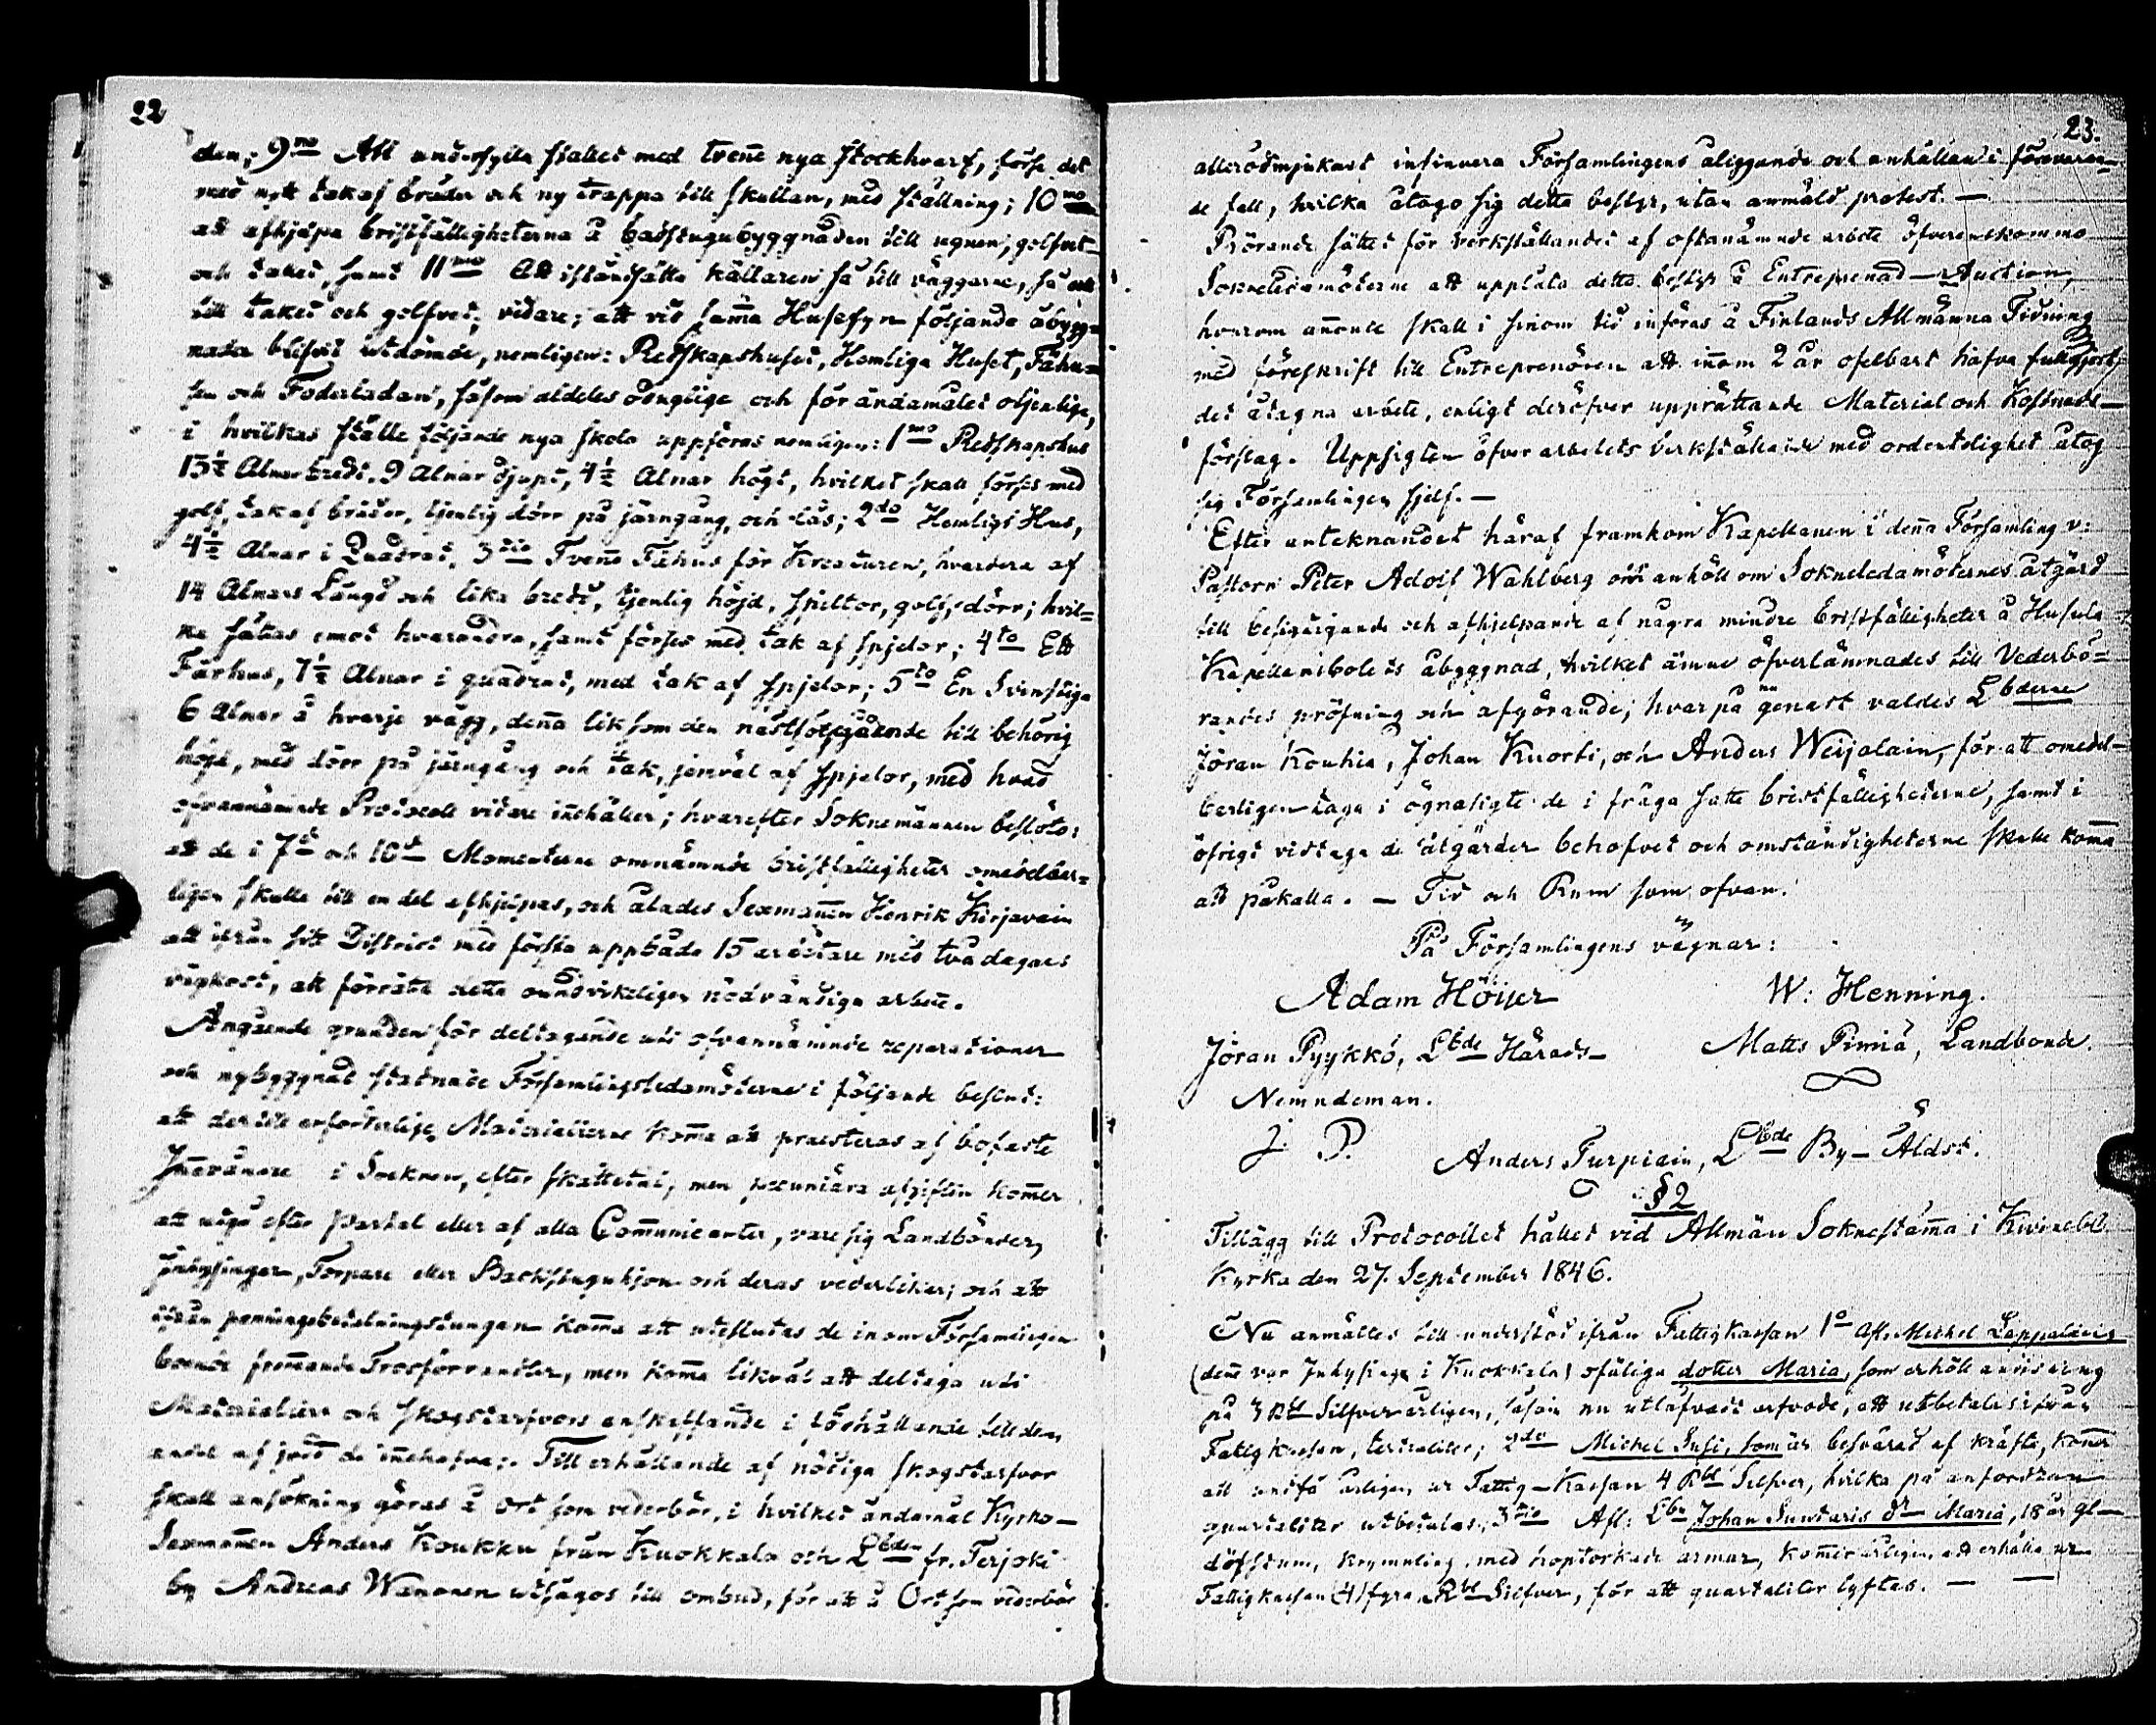 22
den; 9no Att undersylla stallet med trenne nya stockhvarf, förse det
med nytt tak af bräder och ny trappa till skullan, med ställning; 10mo
att afhjelpa bristfälligheterna å badstugubyggnaden till ugnen, golfvet
och taket, samt 11mo Att iståndsätta källaren så till väggarne, så ock
till taket och golfvet; vidare; att vid samma Husesyn följande åbygg=
nader blifvit utdömde, nemligen: Redskapshuset, Hemliga Huset, Fähu=
sen och Foderladan, såsom aldeles odugliga och för ändamålet otjenlige,
i hvilkas ställe följande nya skola uppföras nemligen: 1mo Redskapshus
15½ Alnar bredt, 9 Alnar djupt, 4½ Alnar högt, hvilket skall förses med
golf, tak af bräder, tjenlig dörr på järngång, och lås; 2do Hemligt Hus,
4½ Alnar i Quadrat, 3tio Tvenne Fähus för Kreaturen, hvardera af
14 Alnars Längd och lika bredt, tjenlig höjd, spiltor, golf, dörr; hvil=
ka sättas emot hvarandra, samt förses med tak af spjelor; 4to Ett
Fårhus, 7½ Alnar i quadrat, med tak af spjelor; 5to En Svinstiga
6 Alnar å hvarje vägg, denna liksom den nästföregående till behörig
höjd, med dörr på järngång och tak, jemväl af spjelor, med hvad
ofvannämnde Protocoll vidare innehåller; hvarefter Soknemännen beslöto:
att de i 7de och 10de Momenterne omnämnde bristfälligheter omedelbar=
ligen skulle till en del afhjelpas, och ålades Sexmannen Henrik Kirjavain
att ifrån sitt District med första uppbåda 15 arbetare med två dagars
vägkost, att förrätta detta oundvikeligen nödvändiga arbete.
Angående grunden för deltagande uti ofvannämnde reparationer
och nybyggnad stadnade Församlingsledamöterne i följande beslut:
att dertill erforderlige Materialierne komma att praesteras af bofaste
Innevånare i Socknen, efter skattetal, men pecuniära afgiften kommer
att utgå efter Parhal eller af alla Communicanter, vare sig Landbönder,
Inhysingar, Torpare eller Backstuguhjon och deras vederlikar; och att
ifrån penningebetalningstungan komma att uteslutas de inom Församlingen
boende fremmande Trosförvandter, men komma likväl att deltaga uti
Materialiers och skogstarfvors anskaffande i förhållande till den
andel af jord de innehafva. Till erhållande af nödiga skogstarfvor
skall ansökning göras å Ort som vederbör, i hvilket ändamål Kyrko-
Sexmannen Anders Koukku från Kuokkala och Lbden fr. Terjoki
by Andreas Wanonen utsågos till ombud, för att å Ort som vederbör
23.
allerödmjukast insinuera Församlingens åliggande och anhållan i förevaran-
de fall, hvilka åtogo sig detta bestyr, utan anmäld protest. —
Rörande sättet för verkställandet af oftanämnde arbete öfverenskommo
Sockneledamöterne att upplåta detta bestyr å Entreprenad-Auction,
hvarom annonce skall i sinom tid införas å Finlands Allmänna Tidning
med föreskrift till Entreprenören att innom 2 år ofelbart hafva fullgjort
det åtagna arbete, enligt deröfver upprättande Material och Kostnads-
förslag. Uppsigten öfver arbetets verkställande med ordentelighet åtog
sig Församlingen sjelf. —
Efter antecknandet häraf framkom Kapellanen i denna Församling v:
Pastorn Peter Adolf Wahlberg och anhöll om Sokneledamöternes åtgärd
till besigtigande och afhjelpande af några mindre bristfälligheter å Husula
Kapellansbolets åbyggnad, hvilket ämne öfverlämnades till Vederbö=
randes pröfning och afgörande; hvarpå genast valdes Lbderne
Jöran Kouhia, Johan Kuorti, och Anders Weijalain, för att omedel-
barligen taga i ögnasigte de i fråga satte bristfälligheterne, samt i
öfrigt vidtaga de åtgärder behofvet och omständigheterne skulle komma
att påkalla. — Tid och Rum som ofvan.
På Församlingens vägnar:
Adam Höijer W: Henning.
Jöran Pyykkö, Lbde Härads- Matts Pimiä, Landbonde.
Nemndeman.
J. P. Anders Turpiain, Lbde By-Äldst.
§2
Tillägg till Protocollet hållet vid Allmän Soknestämma i Kivinebb
Kyrka den 27. September 1846.
Nu anmältes till understöd ifrån Fattigkassan 1o Afl. Michel Lappalains
(denne var Inhysing i Kuokkala) ofärliga dotter Maria, som erhöll anvisning
på 3 Rbl Silfver årligen, såsom nu utlåfvadt arfvode, att utbetalas ifrån
Fattigkassan, tertialiter; 2do Michel Susi, som är besvärad af kräfta, kommer
att undfå årligen ur Fattig-Kassan 4 Rbl Silfver, hvilka på anfordran
quartaliter utbetalas; 3tio Afl: Lbn Johan Suntaris dr Maria, 18 år gl-
döfstum, krymnling, med hoptorkade armar, kommer årligen att erhålla ur
Fattigkassan (4) fyra Rbl Silfver, för att quartaliter lyftas. — —